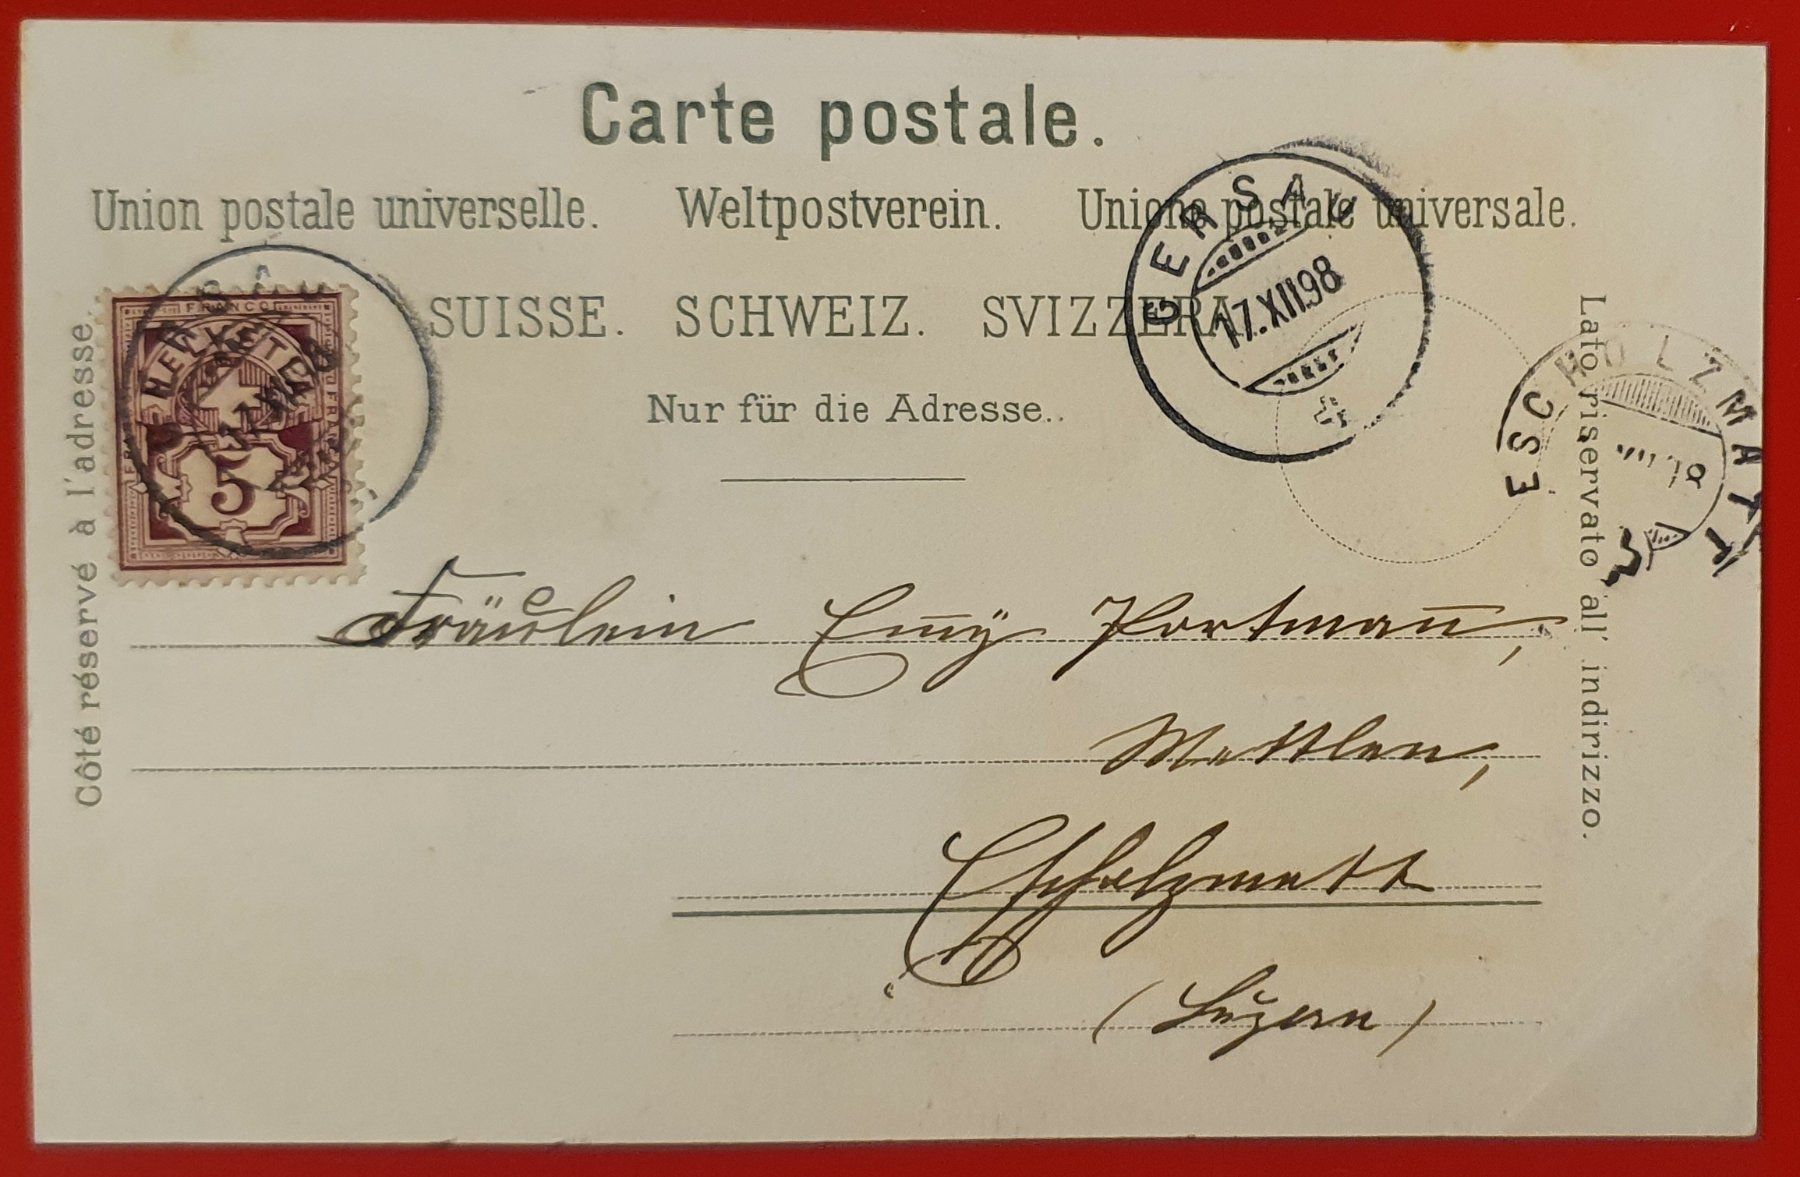 Carte postale.
Union postale universelle. Weltpostverein. Unione postale universale.
SUISSE. SCHWEIZ. SVIZZERA.
Nur für die Adresse..
Côté réservé à l'adresse.
Lato riservato all' indirizzo.
FRANCO
HELVETIA
5
GERSAU
17.XII.98
ESCHOLZMATT
Fräulein Em̄y Portman̄,
Mettlen,
Escholzmatt
(Luzern)